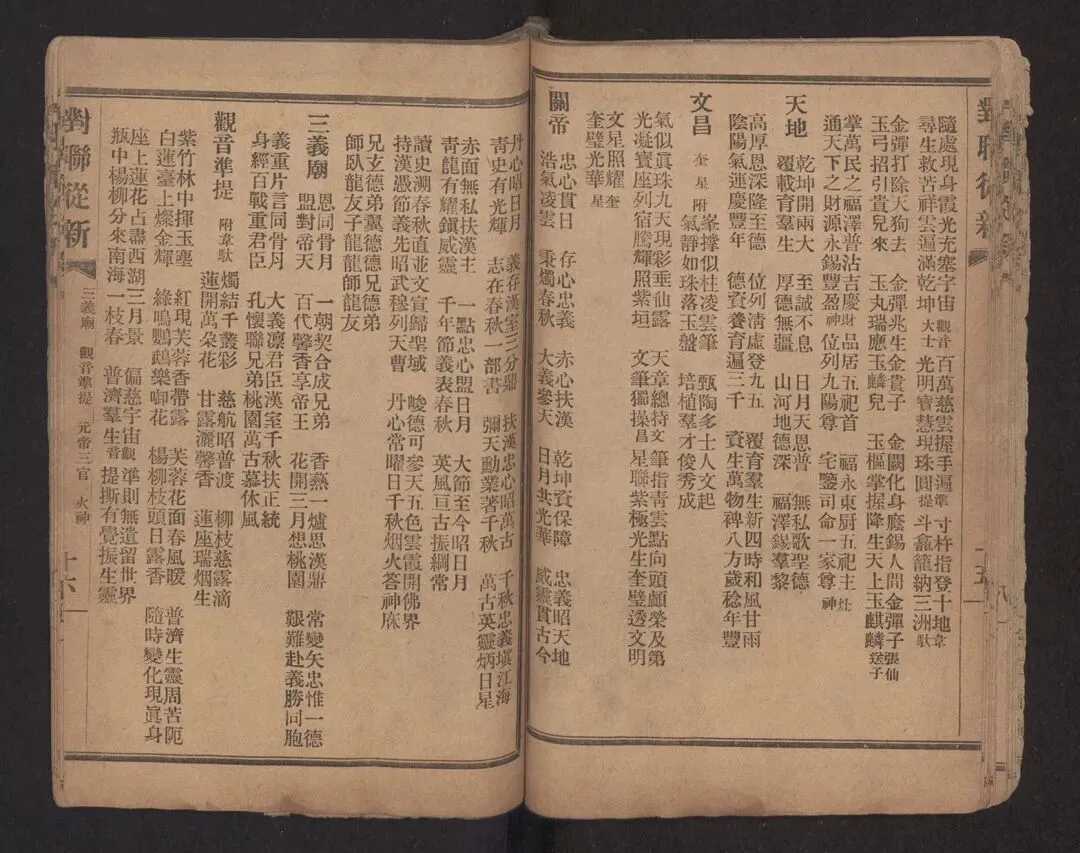 對聯從新
隨處現身霞光充塞宇宙觀音 百萬慈雲握手遍準 寸杵指登十地韋
尋生救苦祥雲遍滿乾坤大士 光明寶慧現珠圓提 斗龕籠納三洲馱
金彈打除天狗去 金彈兆生金貴子 金闕化身廢錫人間金彈子張仙
玉弓招引貴兒來 玉丸瑞應玉麟兒 玉樞掌握降生天上玉麒麟送子
掌萬民之福澤普沾吉慶財 品居五祀首 福永東厨五祀主灶
通天下之財源永錫豐盈神 位列九陽尊 宅鑒司命一家尊神
天地 乾坤開兩大 至誠不息 日月天恩普 無私歌聖德
覆載育羣生 厚德無疆 山河地德深 福澤錫羣黎
高厚恩深隆至德 位列清虛登九五 覆育羣生新四時和風甘雨
陰陽氣運慶豐年 德資養育遍三千 資生萬物裨八方歲稔年豐
文昌 奎星附 峯撐似桂凌雲筆 甄陶多士人文起
氣靜如珠落玉盤 培植羣才俊秀成
氣似眞珠九天現彩垂仙露 天章總持文 筆指靑雲點向頭顱榮及第
光凝寶座列宿騰輝照紫垣 文筆獨操昌 星聯紫極光生奎璧透文明
文星照耀奎
奎璧光華星
關帝 忠心貫日 存心忠義 赤心扶漢 乾坤資保障 忠義昭天地
浩氣凌雲 秉燭春秋 大義參天 日月共光華 威靈貫古今
丹心昭日月 義存漢室三分鼎 扶漢忠心昭萬古 千秋忠義塡江海
靑史有光輝 志在春秋一部書 彌天勳業著千秋 萬古英靈炳日星
赤面無私扶漢主 一點忠心盟日月 大節至今昭日月
靑龍有耀鎭威靈 千年節義表春秋 英風亘古振綱常
讀史溯春秋直並文宣歸聖域 峻德可參天五色雲霞開佛界
持漢憑節義先昭武穆列天曹 丹心常曜日千秋烟火答神庥
兄玄德弟翼德德兄德弟
師臥龍友子龍龍師龍友
三義廟 恩同骨月 一朝契合成兄弟 香爇一爐思漢鼎 常變矢忠惟一德
盟對帝天 百代馨香享帝王 花開三月想桃園 艱難赴義勝同胞
義重片言同骨月 大義凛君臣漢室千秋扶正統
身經百戰重君臣 孔懷聯兄弟桃園萬古慕休風
觀音準提 附韋馱 燭結千叢彩 慈航昭普渡 柳枝慈露滴
蓮開萬朵花 甘露灑馨香 蓮座瑞烟生
紫竹林中揮玉塵 紅現芙蓉香帶露 芙蓉花面春風暖 普濟生靈周苦阨
白蓮臺上燦金輝 綠鳴鸚鵡樂啣花 楊柳枝頭日露香 隨時變化現眞身
座上蓮花占盡西湖三月景 偏慈宇宙觀 準則無遺留世界
瓶中楊柳分來南海一枝春 普濟羣生音 提撕有覺振生靈
對聯從新 三義廟 觀音準提 元帝三官 火神 十六